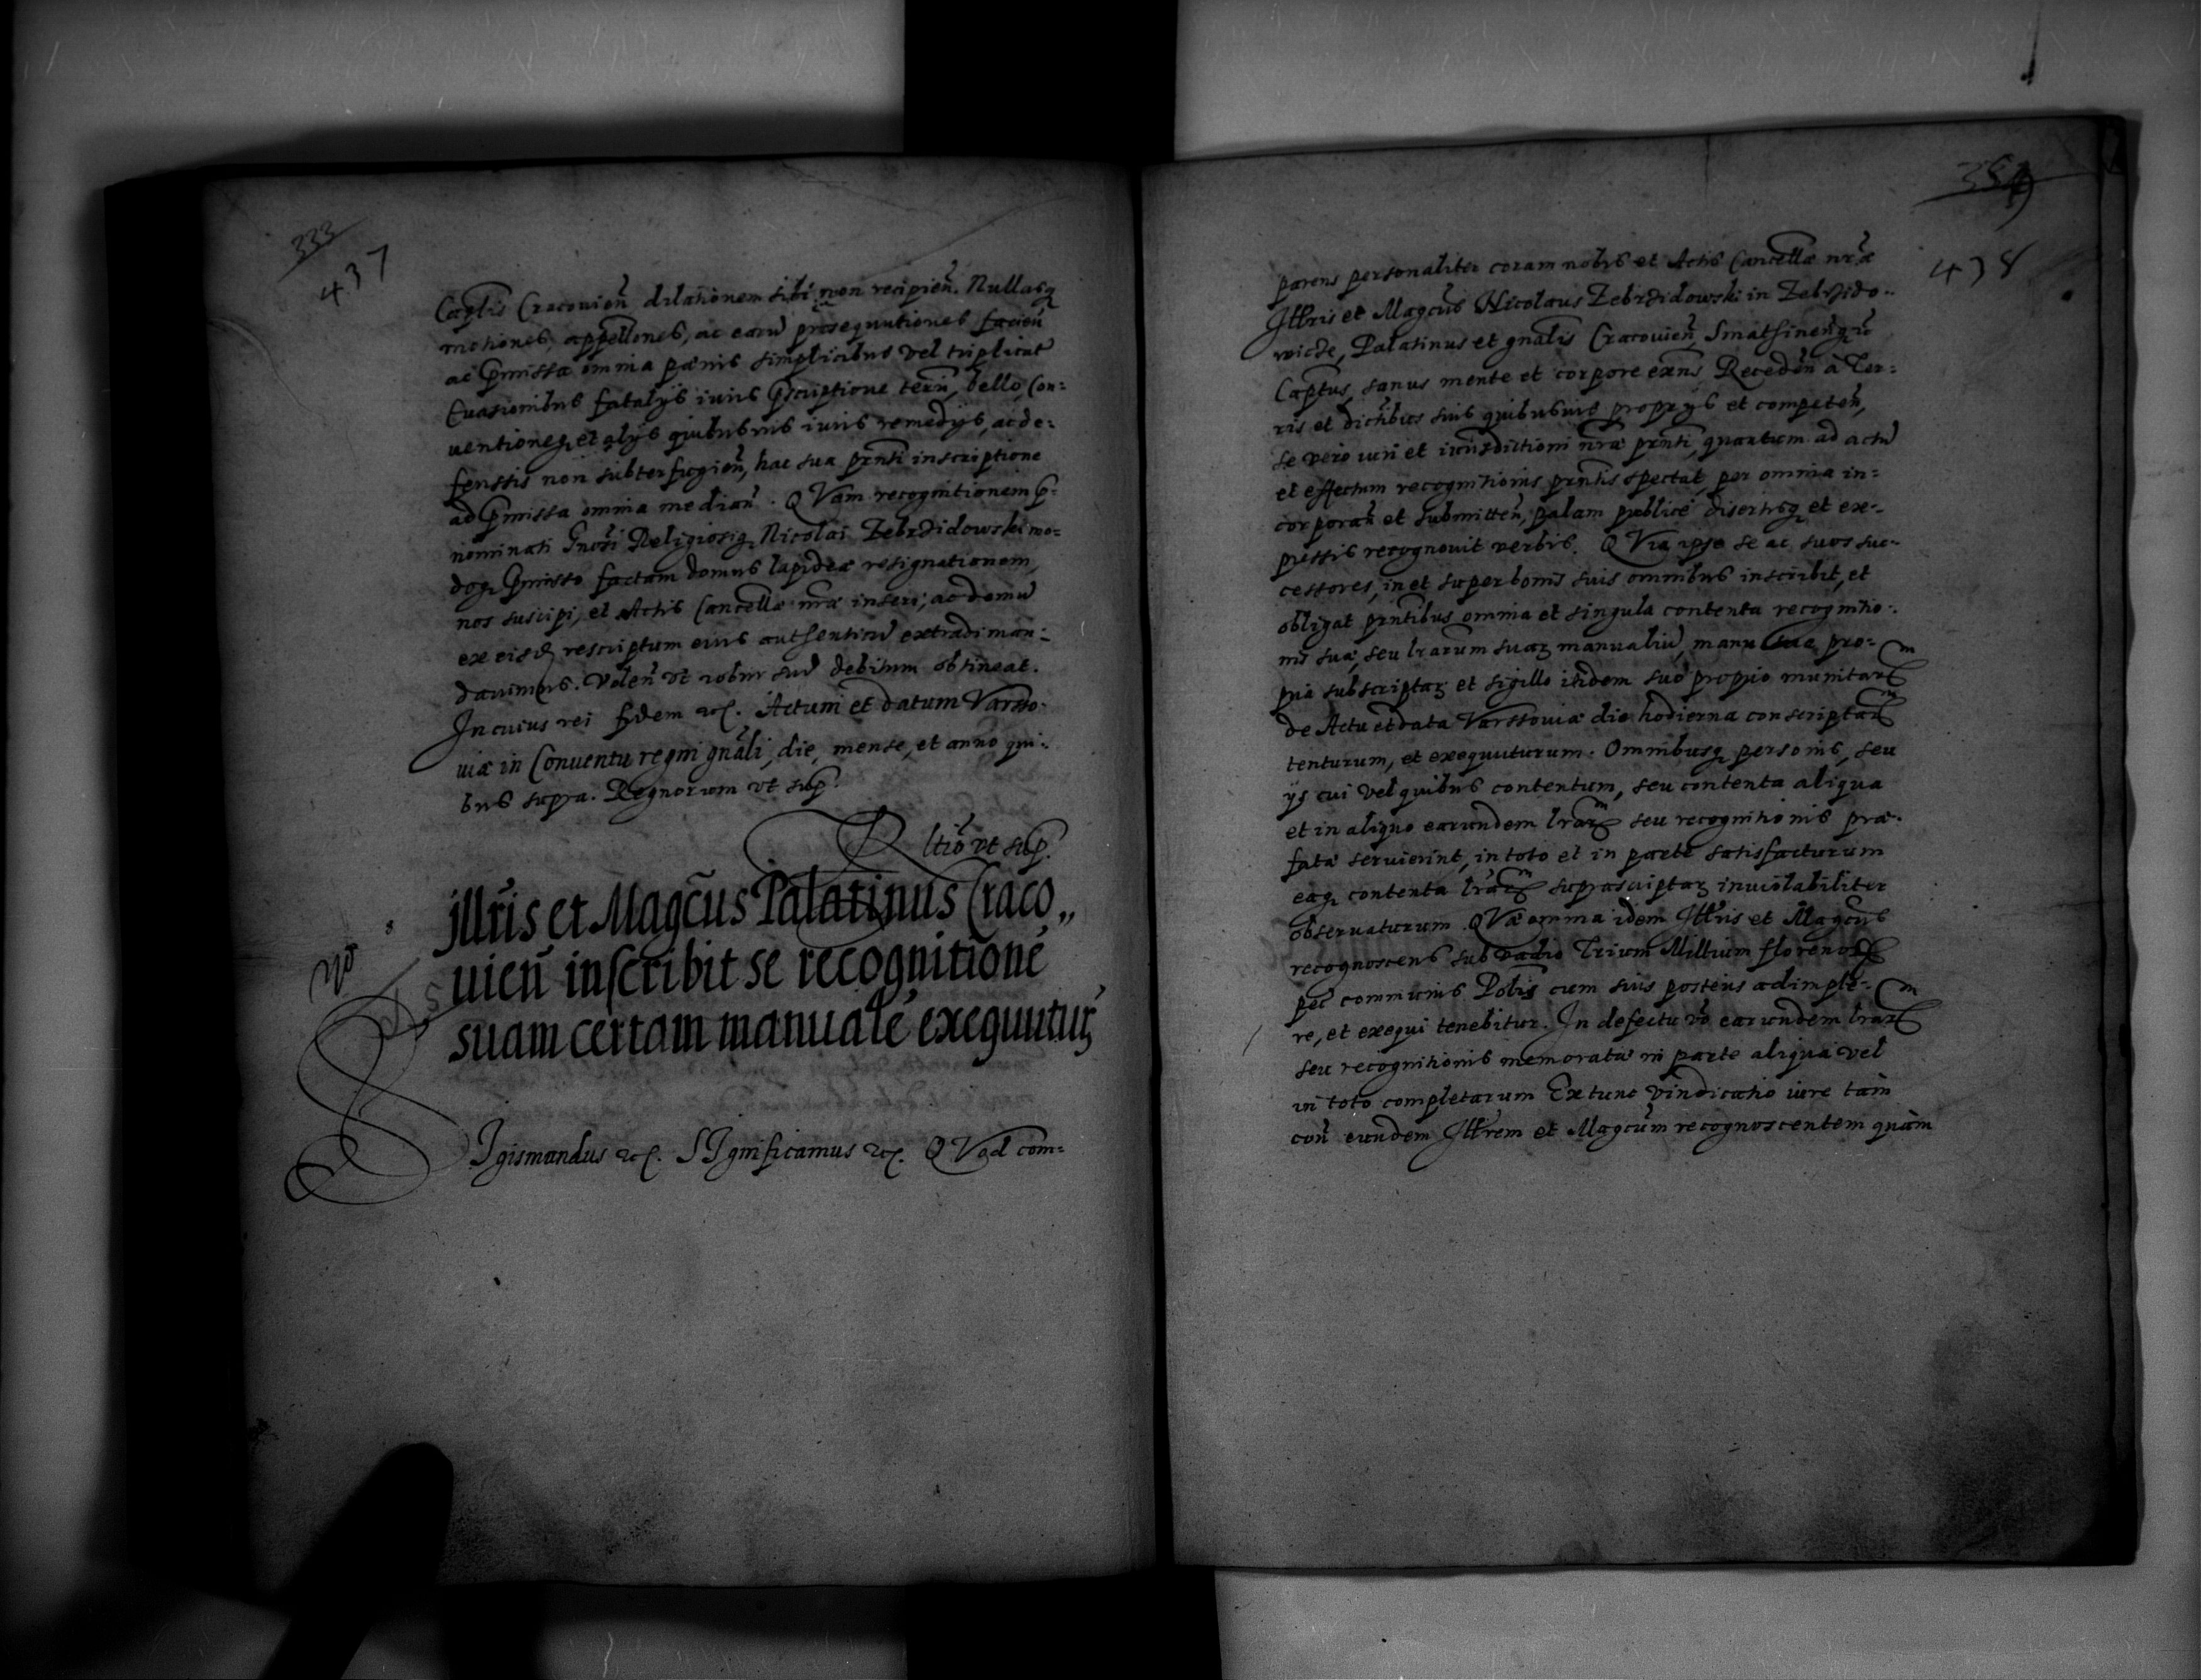 333
437
Capłis Cracouień dilationem sibi non recipień. Nullasq
motiones, appellones, ac earū prosequutiones facień
ac p̄missa omnia pænis simplicibus vel triplicat
Euasionibus fatalijs iuris p̄scriptione terrū, bello, Con=
uentioneq, et alijs quibusuis iuris remedijs, ac de=
fenssis non subterfugień, hac sua prn̄ti inscriptione
ad p̄missa omnia mediań. QVam recognitionem p̄=
nominati Gnosi Religiosiq Nicolai Zebrzidowski mo=
doq p̄misso factam domus lapideæ resignationem,
nos suscipi, et Actis Cancellæ nræ inseri, ac demū
ex eisd rescriptum eius authenticū extradi man=
dauimus. Voleń vt robur suū debitum obtineat.
In cuius rei fidem etc. Actum et datum Varsso-
uiæ in Conuentu regni gnāli, die, mense, et anno qui-
bus supra. Regnorum vt sup.
Rltiō vt sup.
Illris et Magcus Palatinus Craco,,
uień inscribit se recognitione
suam certam manuale exequutur
SIgismundus etc. SIgnificamus etc. QVod com=
354
438
parens personaliter coram nobis et Actis Cancellæ nræ
Illris et Magcus Nicolaus Zebrzidowski in Zebrzido-
wicze, Palatinus et gnalis Cracouień, Sniathineńq
Capteus, sanus mente et corpore exns Recedeń à Ter=
ris et dictibus suis quibusuis proprijs et competeń,
se vero iuri et iurisdictioni nræ prnti, quantum ad actū
et effectum recognitionis prntis spectat, per omnia in=
corporań et submitteń, palam publicè disertisq et ex-
pressis recognouit verbis. QVia ipse se ac suos suc-
cessores, in et super bonis suis omnibus inscribit, et
obligat prntibus omnia et singula contenta recognitio-
nis suæ, seu lrarum suaz manualiū, manu sua pro-
pria subscriptaz et sigillo itidem suo proprio munitarum
de Actu et data Varssouiæ die hodierna conscriptarum
tenturum, et exequuturum. Omnibusq personis, seu
ijs cui vel quibus contentum, seu contenta aliqua
et in aliquo earundem lrarum seu recognitionis præ-
fatæ seruierint, in toto et in parte satisfacturum
eaq contenta lrarum suprascriptaz inuiolabiliter
obseruaturum. QVæ omnia idem Illris et Magcus
recognoscens sub vadio Trium Millium florenorum
pec communis Polis cum suis posteris adimple-
re, et exequi tenebitur. In defectu vō earundem lrarum
seu recognitionis memoratæ in parte aliqua vel
in toto completarum Extunc vindicatio iure tàm
coń eundem Illrem et Magcum recognoscentem quàm